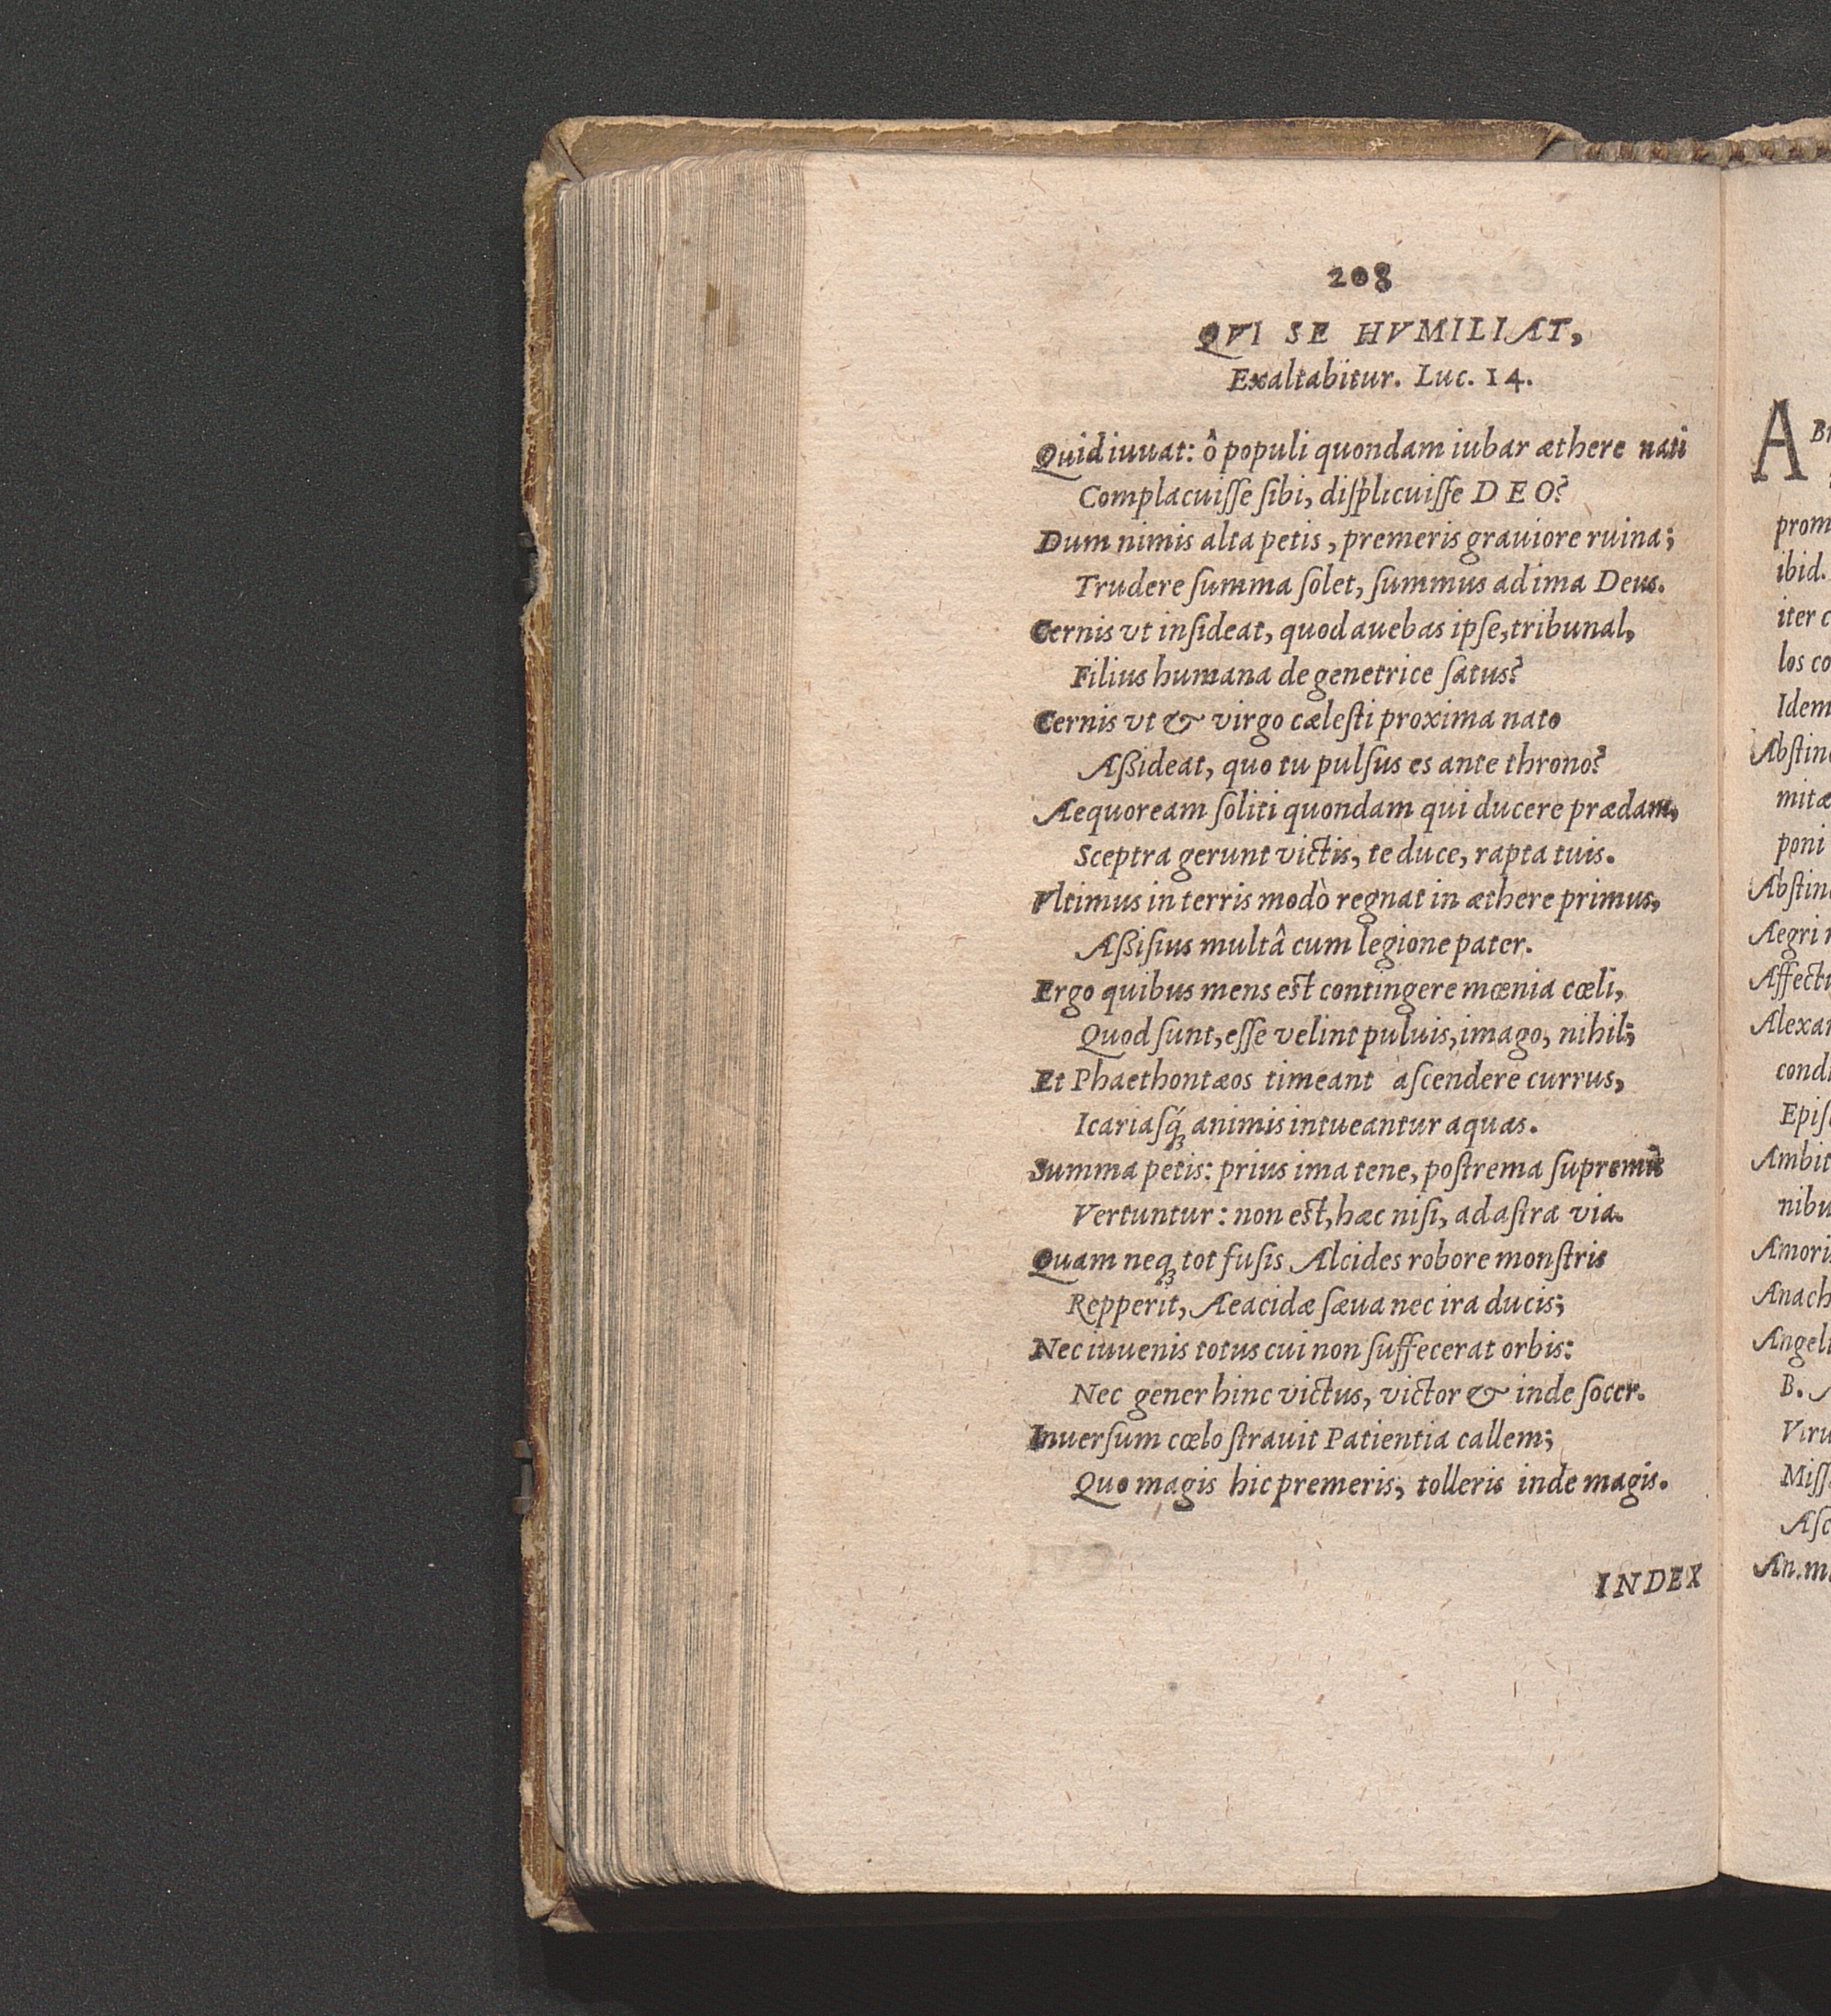 208
QVI SE HVMILIAT,
Exaltabitur. Luc. 14.
Quid iuuat: ô populi quondam iubar æthere nati
Complacuiſſe ſibi, diſplicuiſſe DEO?
Dum nimis alta petis, premeris grauiore ruina;
Trudere ſumma ſolet, ſummus ad ima Deus.
Cernis vt inſideat, quod auebas ipſe, tribunal,
Filius humana de genetrice ſatus?
Cernis vt & virgo cæleſti proxima nato
Aßideat, quo tu pulſus es ante throno?
Aequoream ſoliti quondam qui ducere prædam,
Sceptra gerunt victis, te duce, rapta tuis.
Vltimus in terris modò regnat in æthere primus,
Aßiſius multâ cum legione pater.
Ergo quibus mens eſt contingere mœnia cœli,
Quod ſunt, eſſe velint puluis, imago, nihil;
Et Phaethontæos timeant aſcendere currus,
Icariaſq́ꝫ animis intueantur aquas.
Summa petis: prius ima tene, poſtrema ſupremis
Vertuntur: non eſt, hæc niſi, ad aſtra via.
Quam neqꝫ tot fuſis Alcides robore monſtris
Repperit, Aeacidæ ſæua nec ira ducis;
Nec iuuenis totus cui non ſuffecerat orbis:
Nec gener hinc victus, victor & inde ſocer.
Inuerſum cœlo ſtrauit Patientia callem;
Quo magis hic premeris, tolleris inde magis.
INDEX
A
prom
ibid.
iter c
los co
Idem
Abſtin
mitæ
poni
Abſtin
Aegri
Affect
Alexa
cond
Epiſ
Ambit
nibu
Amori
Anach
Angel
B.
Viru
Miſſ
Aſc
An.m